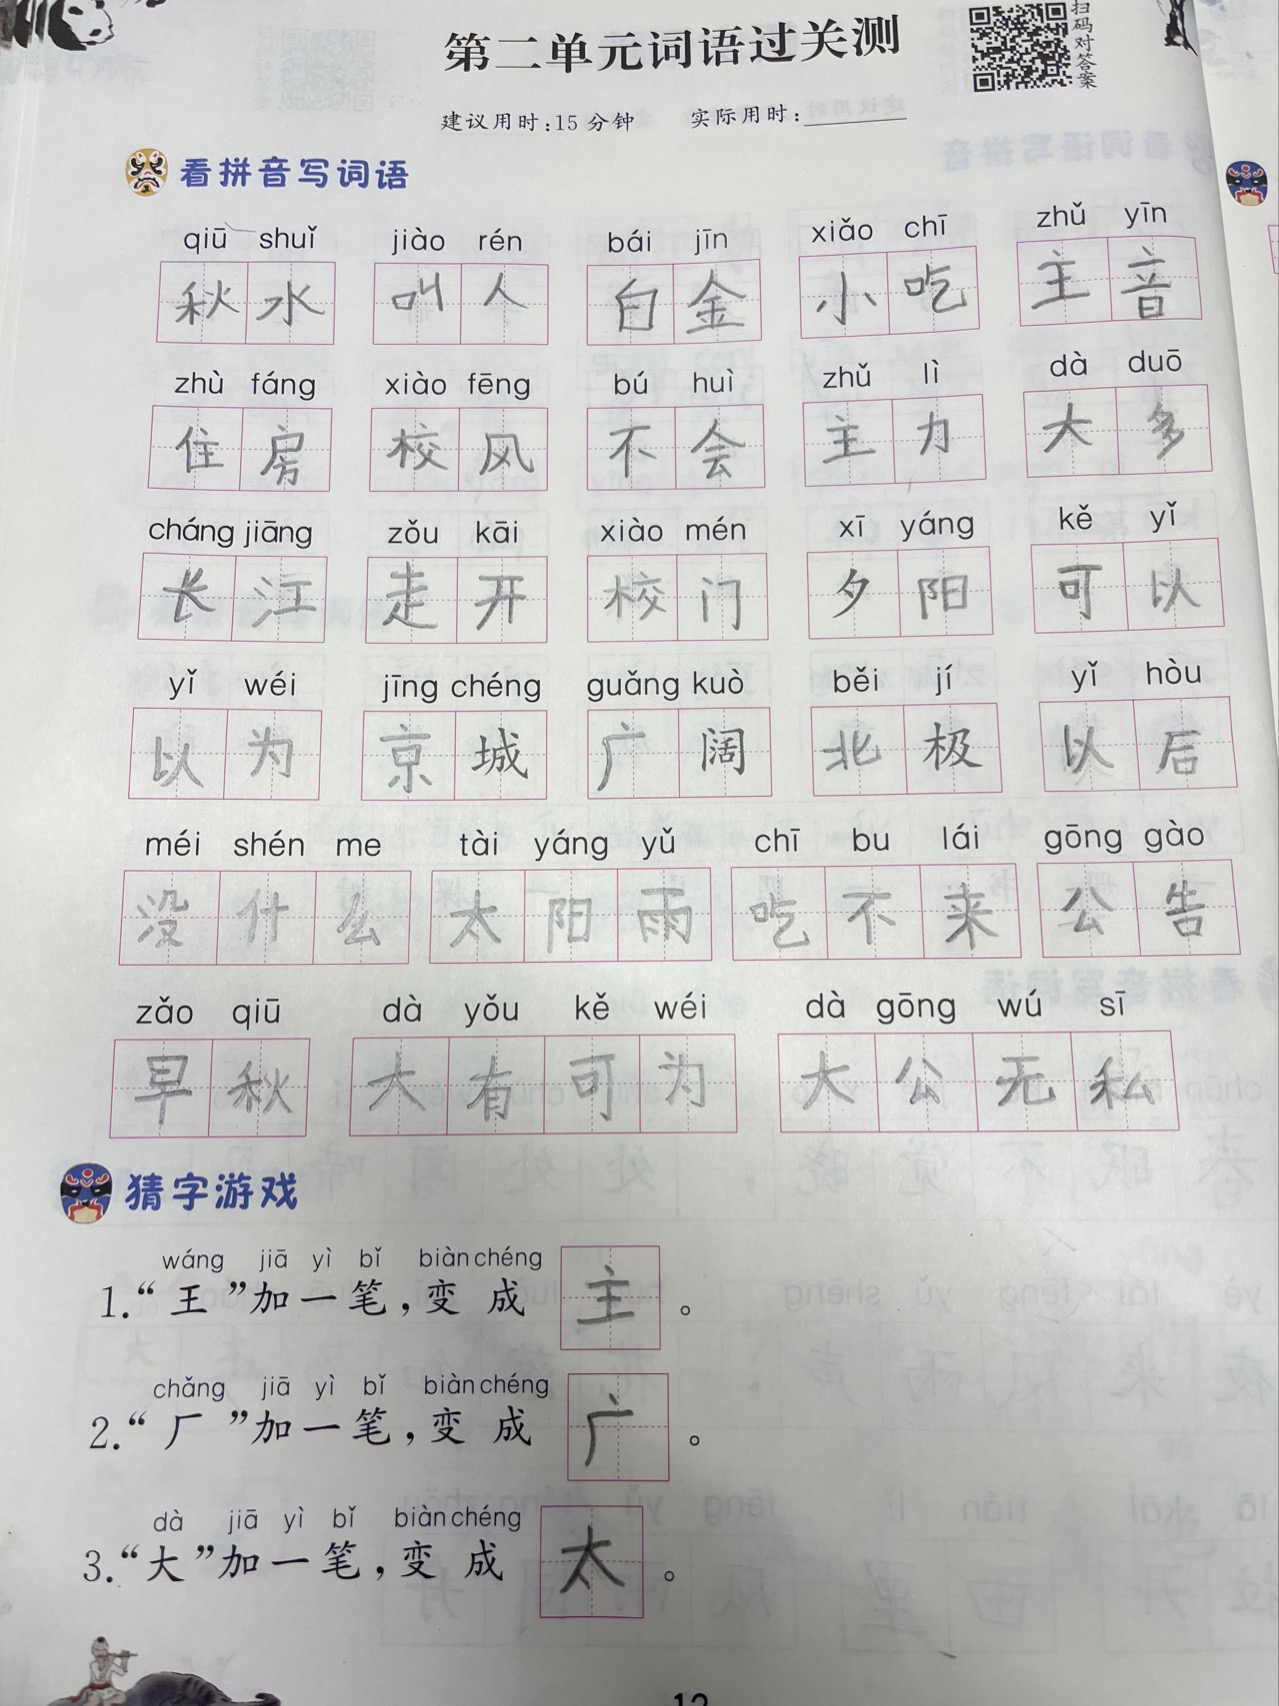 第二单元词语过关测
扫码对答案
建议用时:15分钟 实际用时:
看拼音写词语
qiū shuǐ jiào rén bái jīn xiǎo chī zhǔ yīn
秋水 叫人 白金 小吃 主音
zhù fáng xiào fēng bú huì zhǔ lì dà duō
住房 校风 不会 主力 大多
cháng jiāng zǒu kāi xiào mén xī yáng kě yǐ
长江 走开 校门 夕阳 可以
yǐ wéi jīng chéng guǎng kuò běi jí yǐ hòu
以为 京城 广阔 北极 以后
méi shén me tài yáng yǔ chī bu lái gōng gào
没什么 太阳雨 吃不来 公告
zǎo qiū dà yǒu kě wéi dà gōng wú sī
早秋 大有可为 大公无私
猜字游戏
wáng jiā yì bǐ biàn chéng
1.“王”加一笔,变成 主 。
chǎng jiā yì bǐ biàn chéng
2.“厂”加一笔,变成 广 。
dà jiā yì bǐ biàn chéng
3.“大”加一笔,变成 太 。